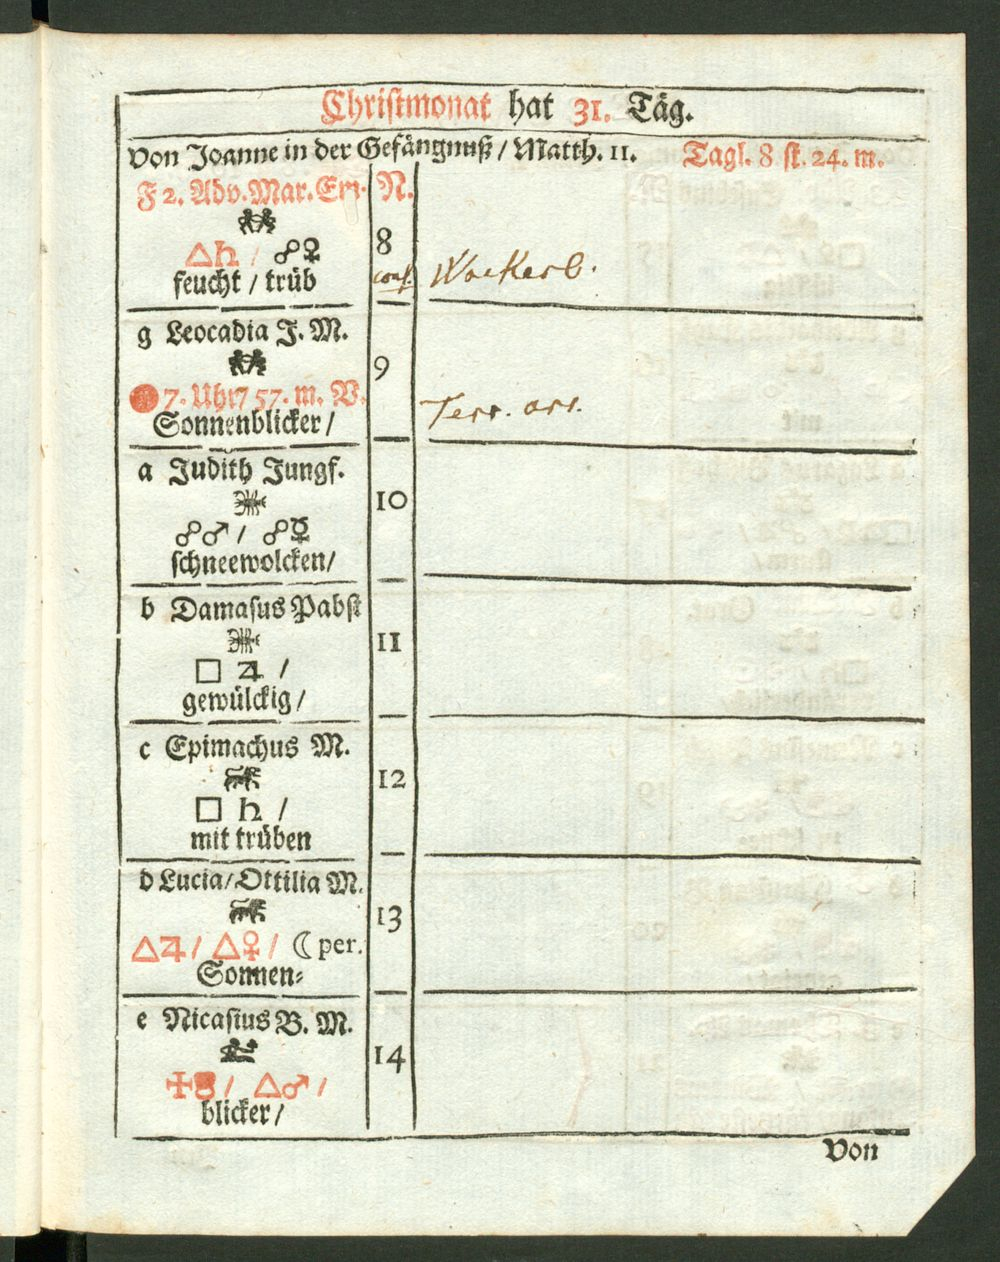 Christmonat hat 31. Täg.
Von Joanne in der Gefängnuß / Matth. 11. Tagl. 8 st. 24. m.
F 2. Adv. Mar. Em. N.
△♄ / ☍♀ 8
feucht / trüb conf. Wackerb.
g Leocadia J. M.
9
7. Uhr 57. m. V.
Sonnenblicker / Terr. arr.
a Judith Jungf.
10
☍♂ / ☍☿
schneewolcken/
b Damasus Pabst
11
□ ♃ /
gewülckig /
c Epimachus M.
12
□ ♄ /
mit trüben
d Lucia / Ottilia M.
13
△♃ / △♀ / ☾ per.
Sonnen-
e Nicasius B. M.
14
△♂ /
blicker /
Von